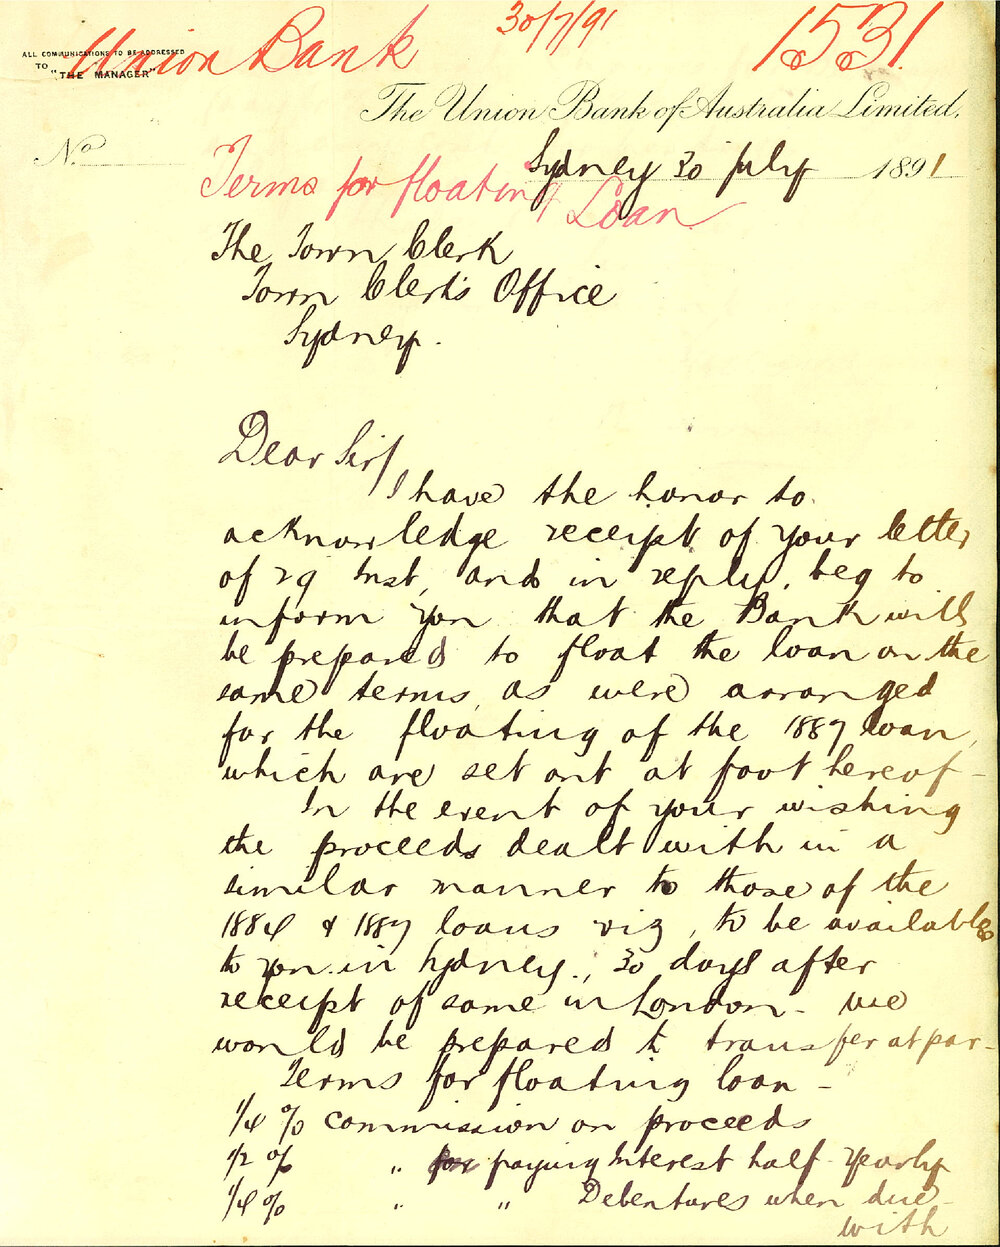 Union Bank 30/7/91 1531
ALL COMMUNICATIONS TO BE ADDRESSED
TO "THE MANAGER"
The Union Bank of Australia Limited.
No
Sydney 30 July 1891
Terms for floating Loan
The Town Clerk
Town Clerk's Office
Sydney.
Dear Sir/
I have the honor to
acknowledge receipt of your letter
of 29 Inst, and in reply, beg to
inform you that the Bank will
be prepared to float the loan on the
same terms, as were arranged
for the floating of the 1887 loan,
which are set out at foot hereof -
In the event of your wishing
the proceeds dealt with in a
similar manner to those of the
1884 & 1887 loans viz, to be available
to you in Sydney, 30 days after
receipt of same in London - we
would be prepared to transfer at par -
Terms for floating loan -
1/4 % commission on proceeds
1/2 % " for paying Interest half Yearly
1/4 % " " Debentures when due -
with